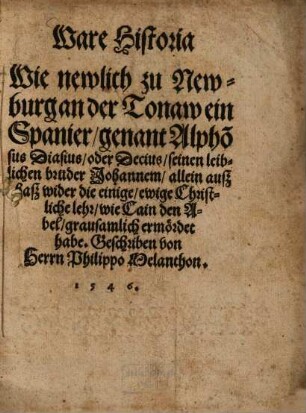 Ware Historia
Wie newlich zu New-
burg an der Tonaw ein
Spanier/genant Alphō
sus Diasius/oder Decius/seinen leib-
lichen brůder Johannem/allein auß
Haß wider die einige/ewige Christ-
liche lehr/wie Cain den A-
bel/grausamlich ermördet
habe. Geschriben von
Herrn Philippo Melanthon.
1546.